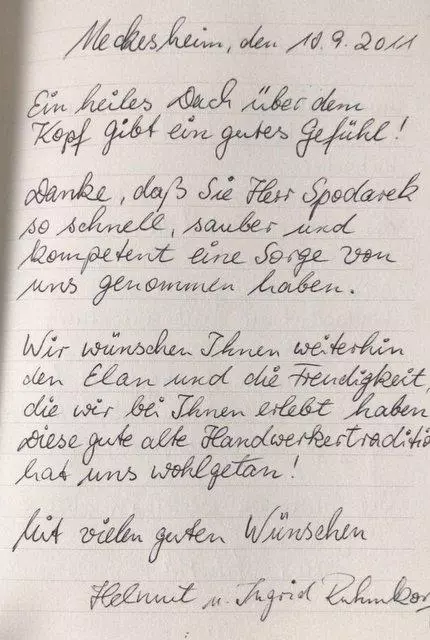 Meckesheim, den 10.9.2011
Ein heiles Dach über dem
Kopf gibt ein gutes Gefühl!
Danke, daß Sie Herr Spodarek
so schnell, sauber und
kompetent eine Sorge von
uns genommen haben.
Wir wünschen Ihnen weiterhin
den Elan und die Freudigkeit,
die wir bei Ihnen erlebt haben
Diese gute alte Handwerkertraditio
hat uns wohlgetan!
Mit vielen guten Wünschen
Helmut u. Ingrid